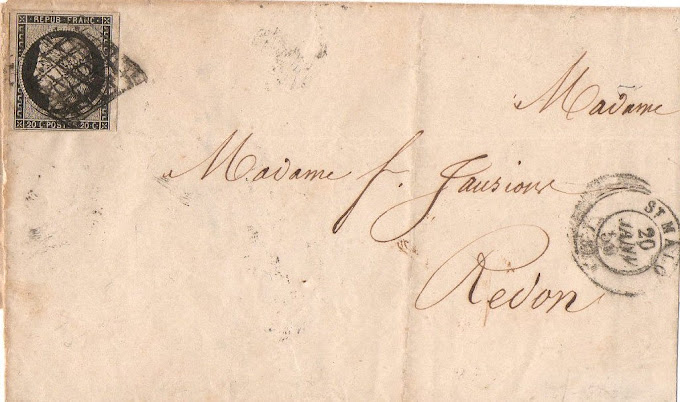 REPUB. FRANC.
20 C. POSTES 20 C.
Madame
Madame f. Jausions
Redon
ST MALO
20
JANV